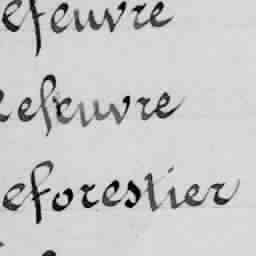 efeuvre
efeuvre
eforestier